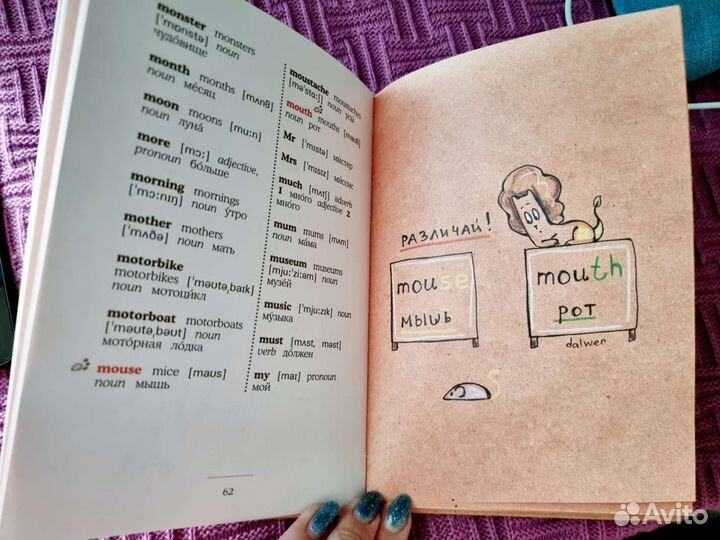 monster monsters
[ˈmɒnstə] noun
чудо́вище
month months [mʌnθ]
noun ме́сяц
moon moons [muːn]
noun луна́
more [mɔː] adjective,
pronoun бо́льше
morning mornings
[ˈmɔːnɪŋ] noun у́тро
mother mothers
[ˈmʌðə] noun мать
motorbike
motorbikes [ˈməʊtəˌbaɪk]
noun мотоци́кл
motorboat motorboats
[ˈməʊtəˌbəʊt] noun
мото́рная ло́дка
mouse mice [maʊs]
noun мышь
moustache moustaches
[məˈstɑːʃ] noun усы́
mouth mouths [maʊθ]
noun рот
Mr [ˈmɪstə] ми́стер
Mrs [ˈmɪsɪz] ми́ссис
much [mʌtʃ] adverb
1 мно́го adjective 2
мно́го
mum mums [mʌm]
noun ма́ма
museum museums
[mjuːˈziːəm] noun
музе́й
music [ˈmjuːzɪk] noun
му́зыка
must [mʌst, məst]
verb до́лжен
my [maɪ] pronoun
мой
62
РАЗЛИЧАЙ!
mouse
мышь
mouth
рот
dalwen
S
Avito